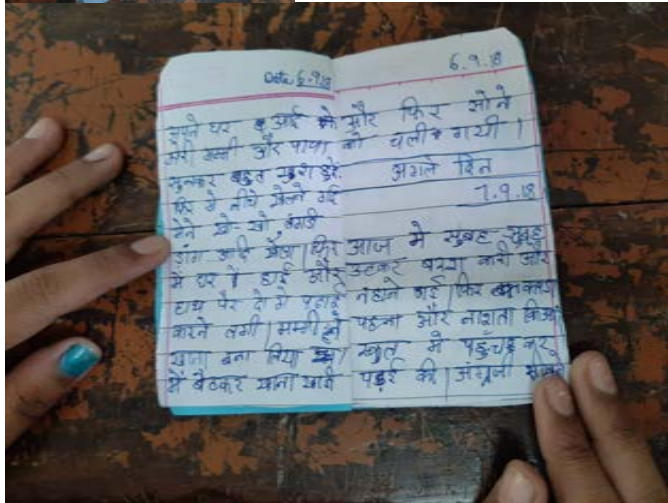 Date 6.9.18
अपने घर आई
मेरी मम्मी और पापा को
सुनकर बहुत खुश हुऐ
फिर में नीचे खेलने गई
मेने खो-खो, लंगडी
डांग आदि खेला। फिर
में घर में आई और
हाथ पैर दो में पढाई
करने लगी। मम्मी ने
खाना बना लिया
में बैठकर खाना खायी
6.9.18
और फिर सोने
चली गयी।
अगले दिन
7.9.18
आज में सुबह-सुबह
उठकर बरस कारी और
नहाने गई। फिर
पहना और नाशता किआ
स्कूल में पहुँच कर
पढ़ई की। अंग्रजी